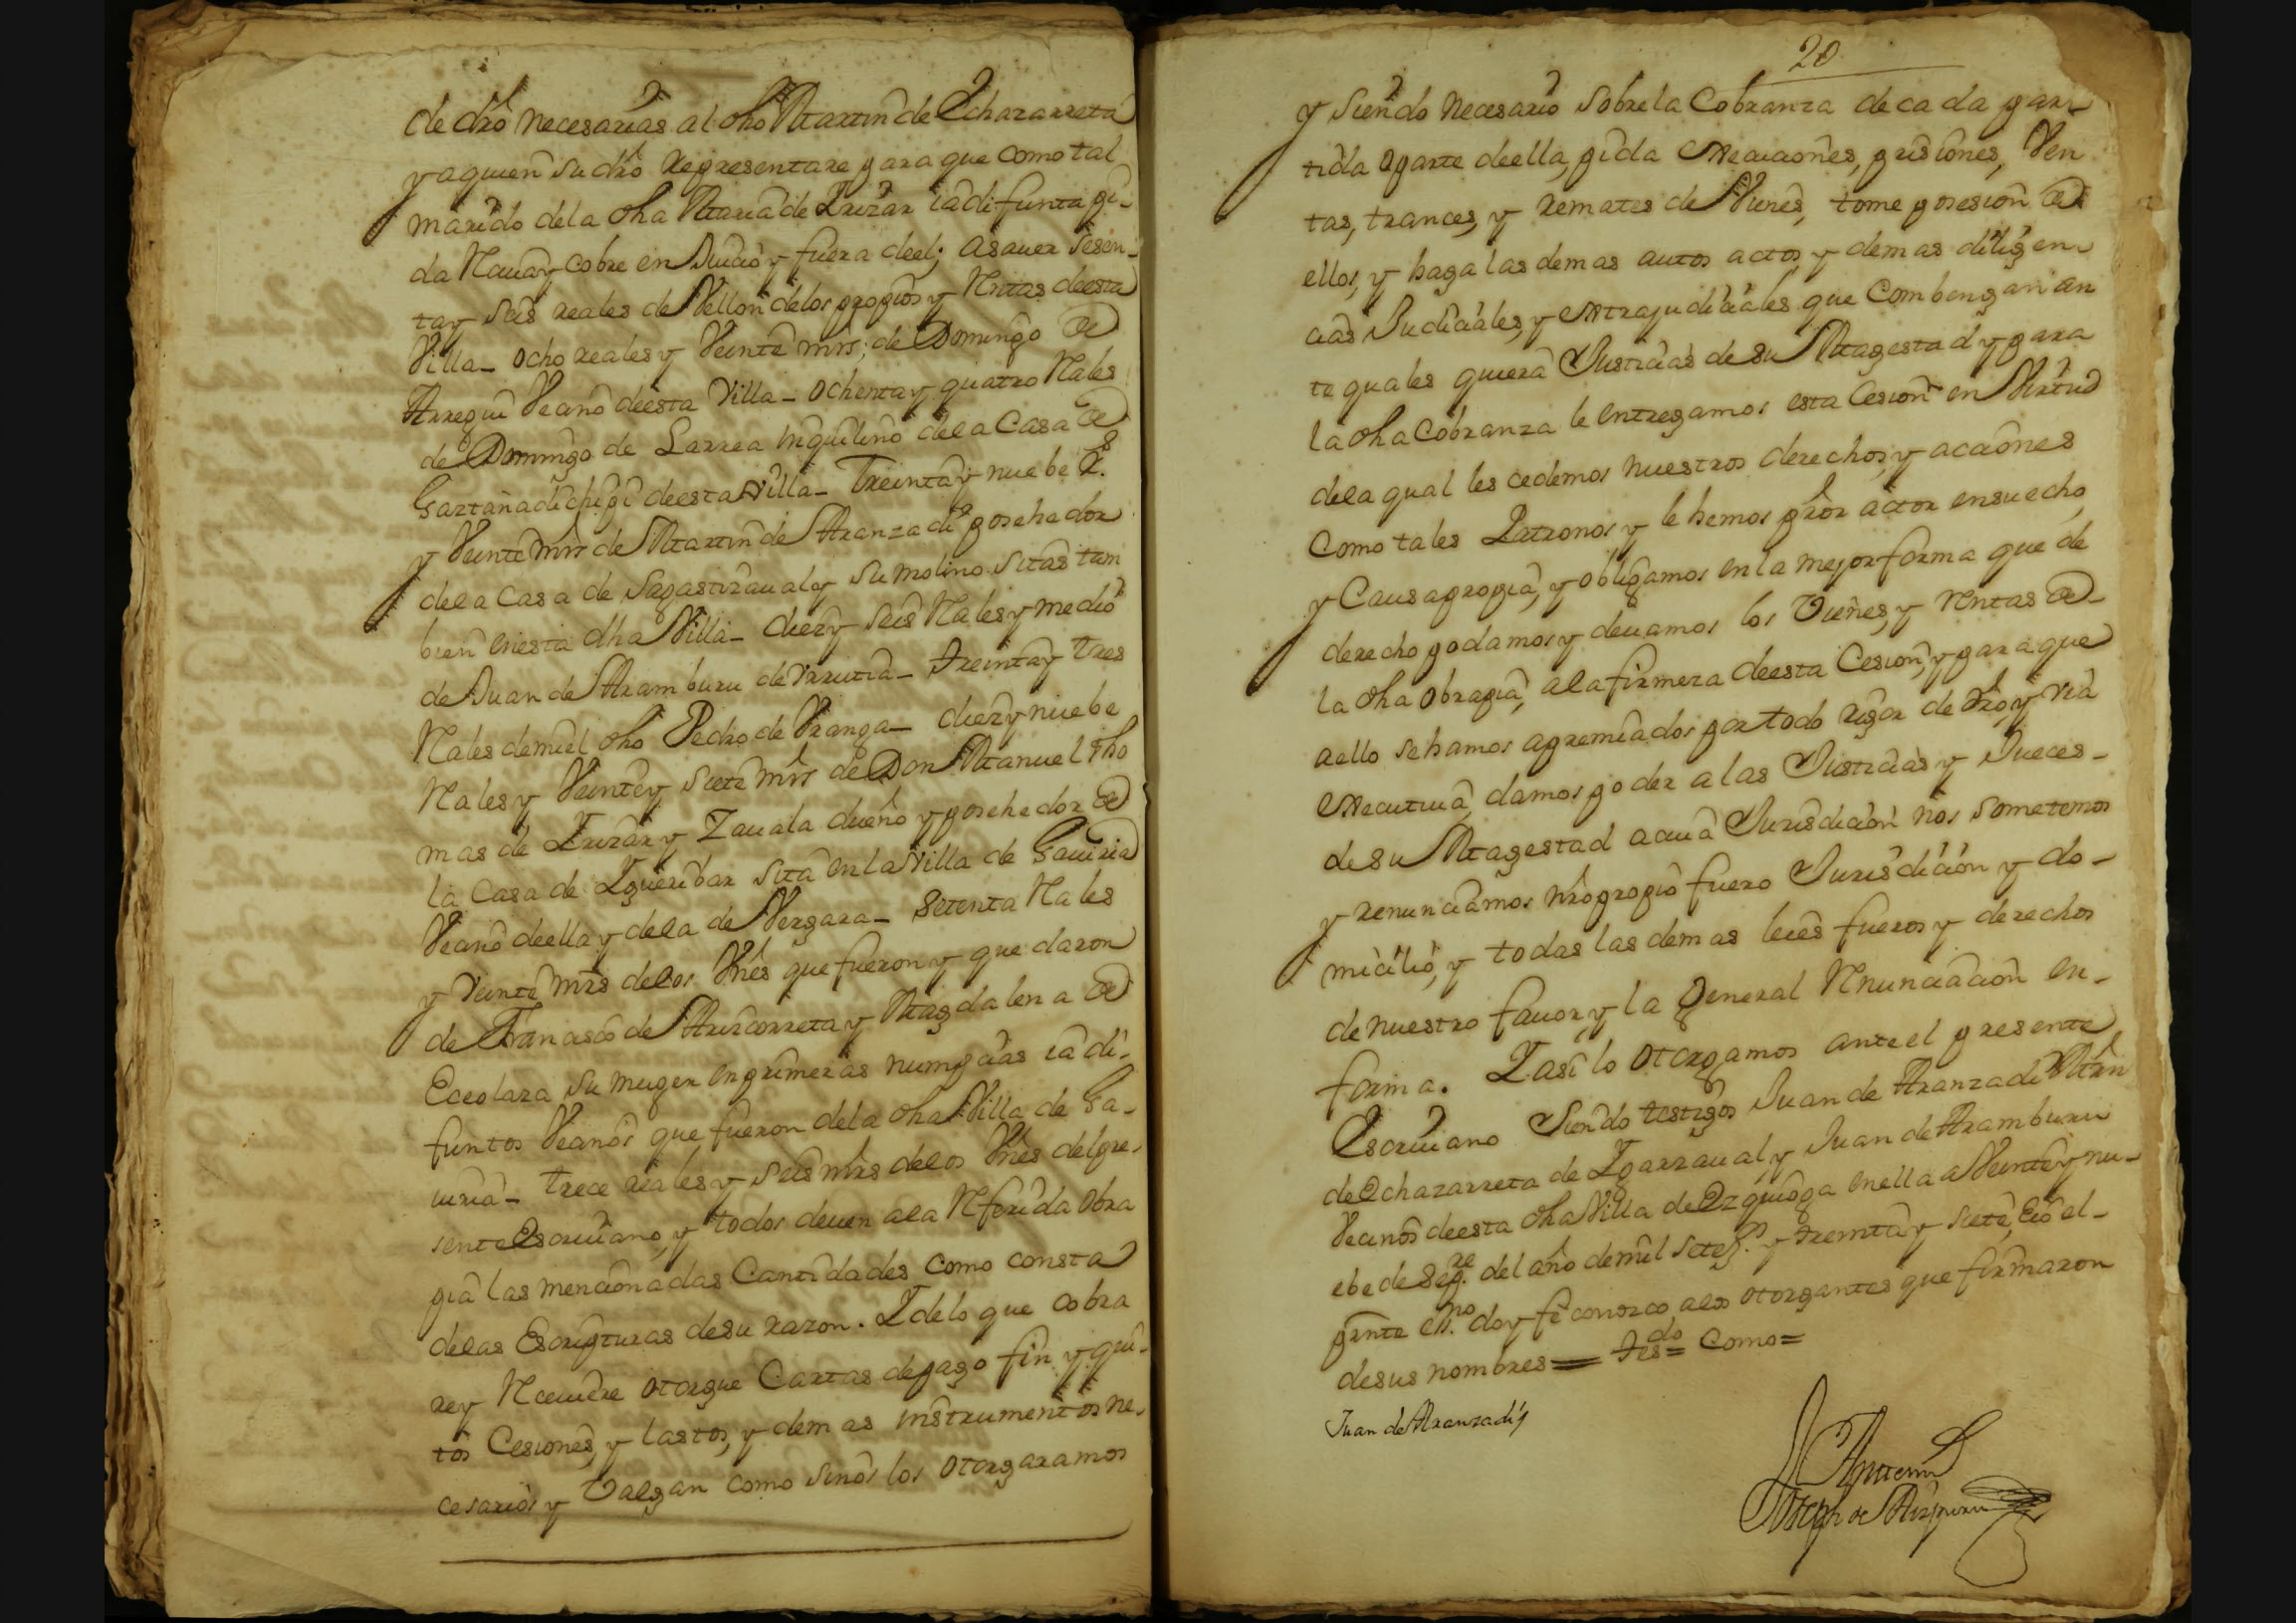 de dro necesarias al dho Martin de Echazarreta
y aquien su dro Representare para que como tal
marido dela dha Maria de Irizar ia difunta pi-
da Reciua y cobre en Juicio y fuera deel; asauer sesen-
ta y seis reales de Vellon delos propios y Rentas deesta
Villa_ ocho reales y Veinte mrs; de Domingo de
Arregui Vecino deesta Villa_ ochenta y quatro Reales
de Domingo de Larrea inquilino dela Casa de
Gartañadichipi deesta Villa_ Treinta y nuebe Rs.
y Veinte mrs de Martin de Aranzadi posehedor
dela Casa de Sagastizaual y su molino sitas tam
bien enesta dha Villa_ diez y seis Reales y medio
de Juan de Aramburu de Vrrutia_ treinta y tres
Reales demi el dho Pedro de Vranga_ diez y nuebe
Reales y Veinte y siete mrs de Don Manuel Tho
mas de Irizar y Zauala dueño y posehedor de
la Casa de Igueribar sita enla Villa de Gauiria
Vecino deella y dela de Vergara_ setenta Reales
y Veinte mrs delos Vnes que fueron y quedaron
de Francisco de Ariscorreta y Magdalena de
Eceolaza su muger en primeras numpcias ia di-
funtos Vecinos que fueron dela dha Villa de Ga-
uiria_ trece reales y seis mrs delos Vnes del pre-
sente Escriuano, y todos deuen ala Referida obra
pia las mencionadas Cantidades como consta
delas Escripturas desu razon. I delo que cobra
re y Receuiere otorgue Cartas depago fin y qui-
tos Cesiones, y lastos, y demas instrumentos ne-
cesarios y Valgan como si nos los otorgaramos
20
y siendo necesario sobre la Cobranza de cada par-
tida o parte deella, pida execuciones, prisiones, Ven
tas, trances, y remates de Vienes, tome posesion de
ellos, y haga las demas autos actos y demas diligen-
cias Judiciales, y extrajudiciales que combengan an
te quales quiera Justicias de su Magestad y para
la dha Cobranza le entregamos esta Cesion en Virtud
dela qual les cedemos nuestros derechos, y acciones
Como tales Patronos y le hemos pror actor ensu echo,
y Causa propia, y obligamos en la mejor forma que de
derecho podamos y deuamos los Vienes, y Rentas de-
la dha obrapia, ala firmeza deesta Cesion, y para que
aello sehamos apremiados por todo rigor de dro, y via
executiua, damos poder alas Justicias y Jueces-
de su Magestad acuia Jurisdicion nos sometemos
y renunciamos nro propio fuero Jurisdicion y do-
micilio, y todas las demas leies fueros y derechos
de nuestro fauor y la General Renunciacion en-
forma. I asi lo otorgamos ante el presente
Escriuano siendo testigos Juan de Aranzadi Mrn
de Echazarreta de Igarzaual y Juan de Aramburu
Vecinos deesta dha Villa de Ezquioga enella a Veinte y nu-
ebe de Sepre. del año demil setes. y treinta y siete, E io el-
preste esno. doy fe conozco alos otorgantes que firmaron
de sus nombres= tesdo= Como=
Juan de Aranzadi
Ante mi
Joseph de Aizpuru